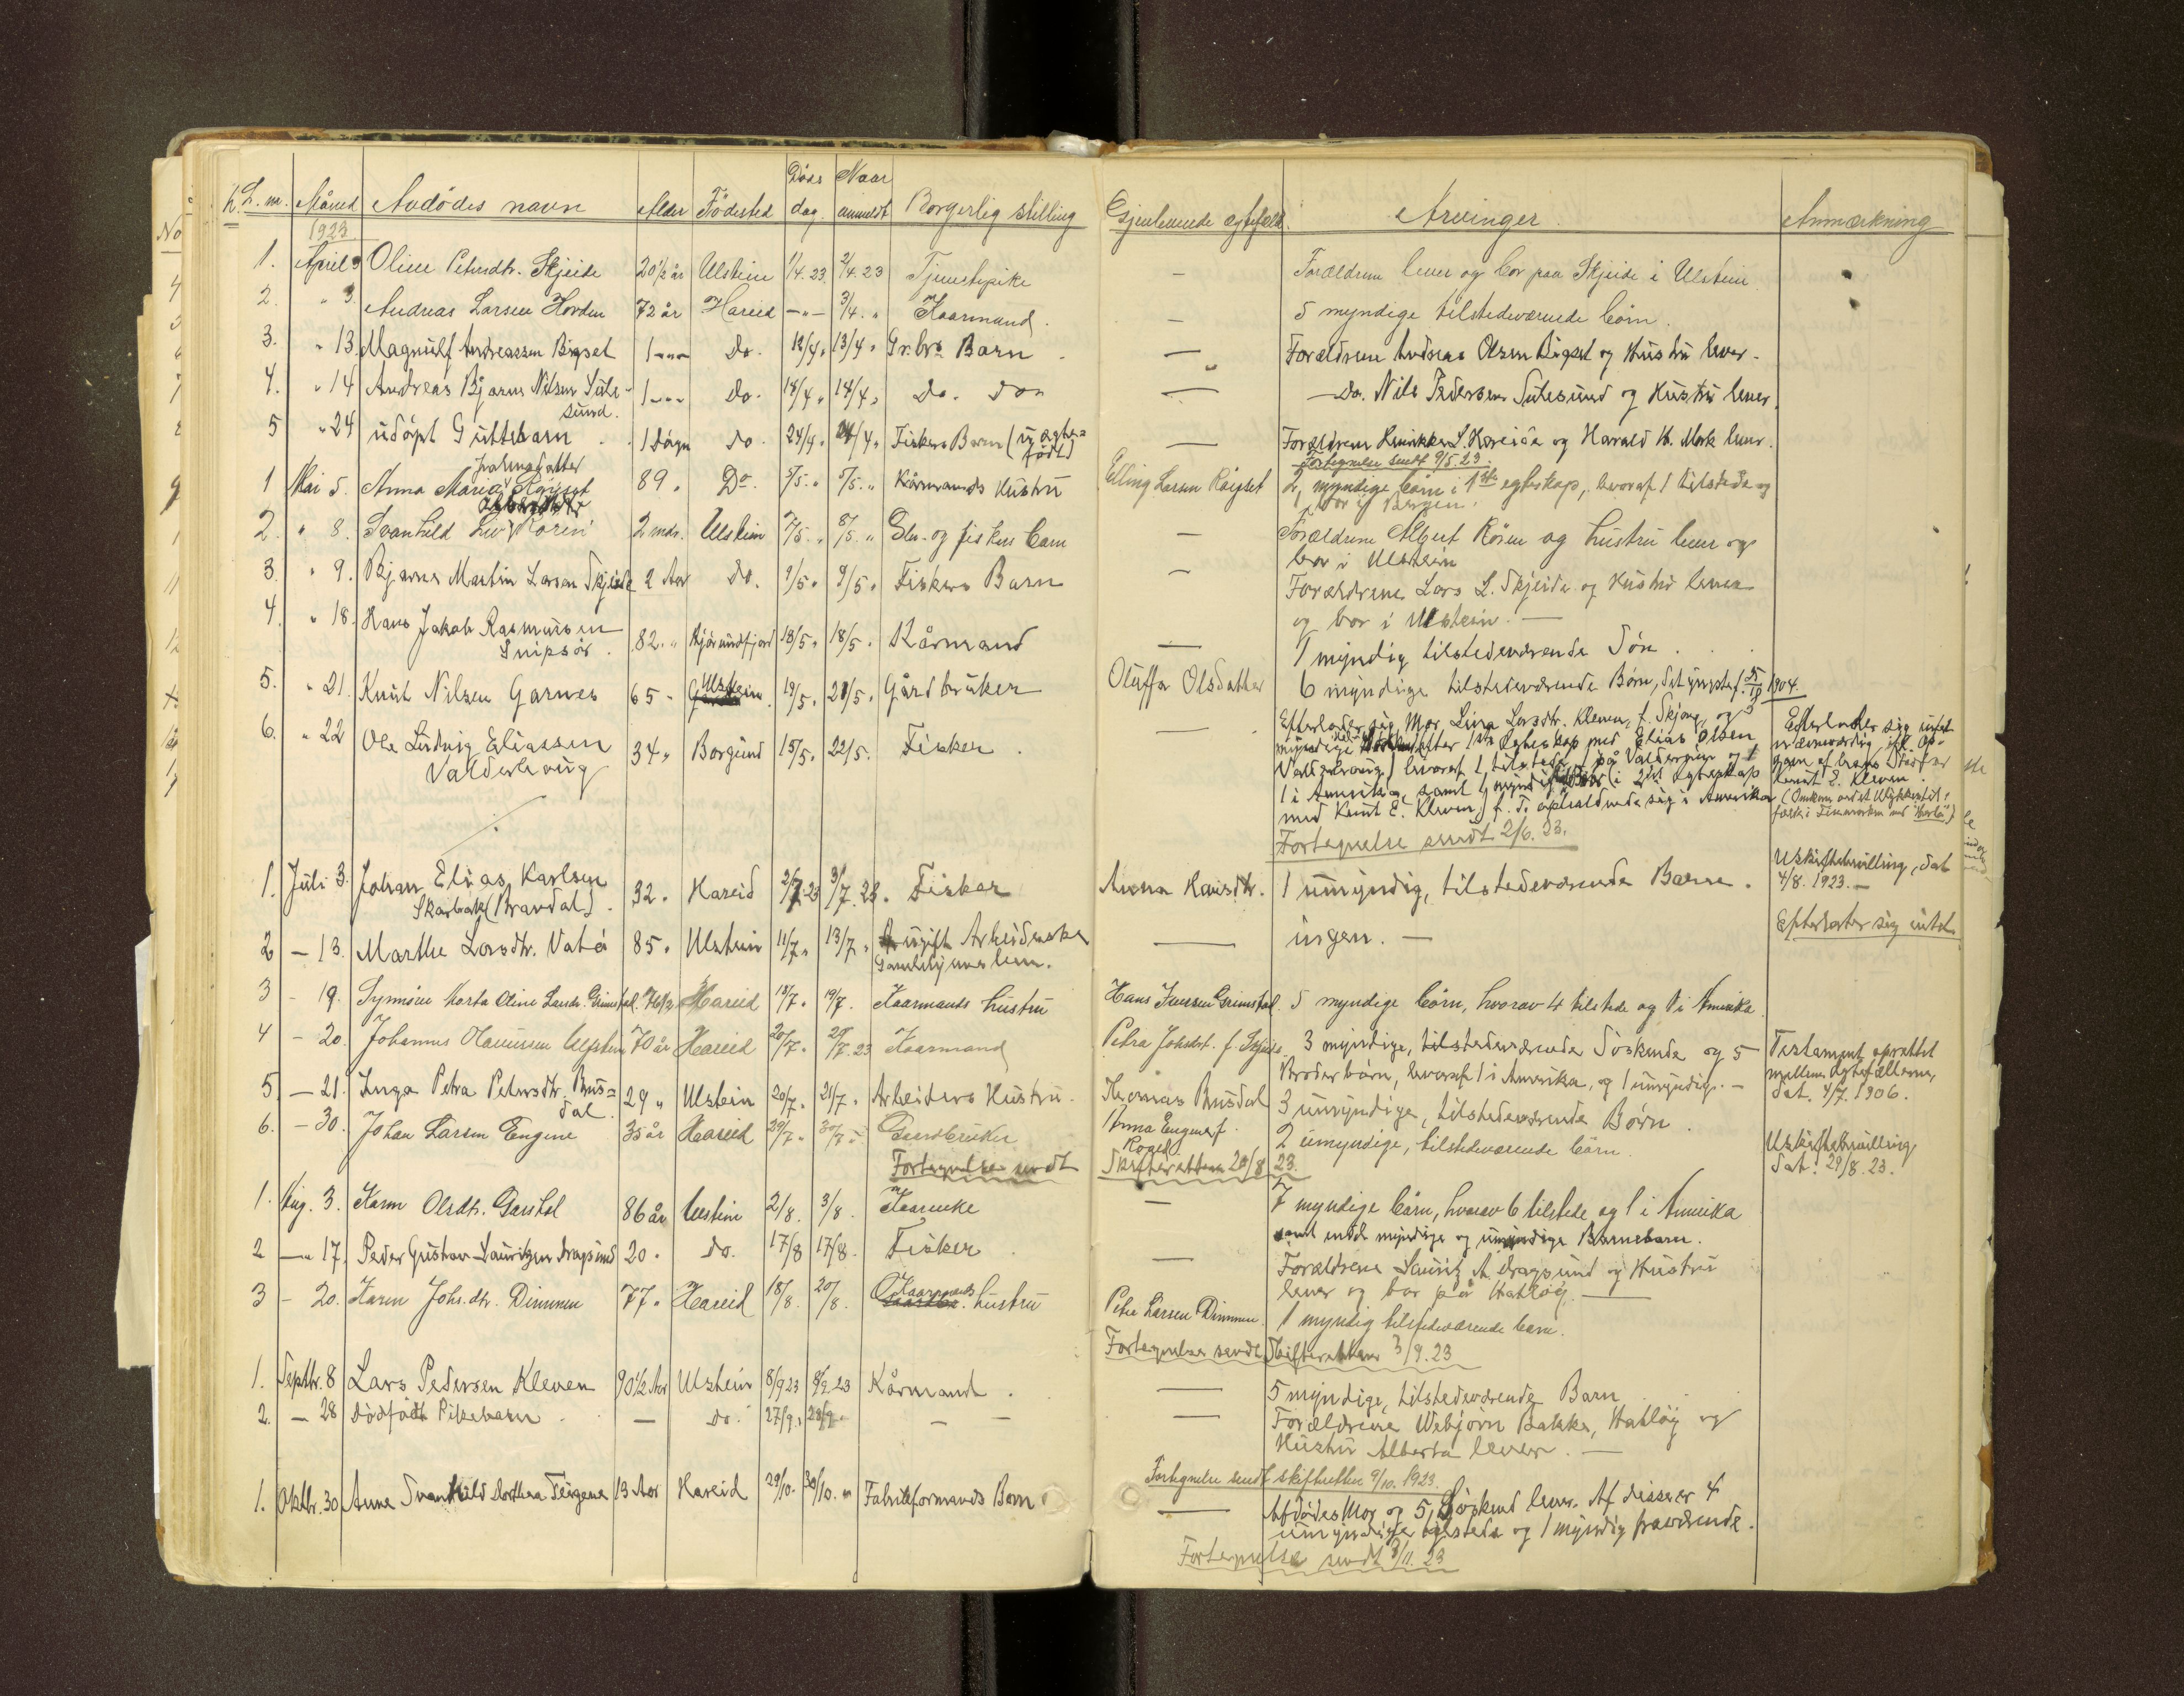 L. nr. Måned Avdödes navn Alder Födested Döds dag. Naar anmeldt Borgerlig stilling Gjenlevende egtefælle. Arvinger. Anmærkning
1923
1. April 3 Oline Petersdtr. Skjeide 20½ år Ulstein 1/4.23. 2/4.23 Tjenestepike — Forældrene lever og bor paa Skjeide i Ulstein.
2. " 3. Andreas Larsen Hovden 72 år Hareid —"— 3/4. " Kaarmand. — 5 myndige tilstedeværende börn.
3. " 13. Magnulf Andreassen Bigset 1 Do. 12/4 " 13/4 " Gr.br. Barn — Forældrene Andreas Olsen Bigset og Hustru lever.
4. " 14 Andreas Bjarne Nilsen Sule-
sund. 1 Do. 14/4 " 14/4 " Do. Do — Do. Nils Pedersen Sulesund og Hustru lever.
5 " 24 udöpt Guttebarn 1 Dögn Do 24/4 " 24/4 " Fiskers Barn (uægte=
födt) — Forældrene L. Hareide og Harald Mork lever.
Fortegnelse sendt 9/5.23.
1 Mai 5. Anna Maria Röiset 89 " Do. 5/5. " 5/5. " Kårmands Hustru Elling Larsen Röiset 2 myndige börn i 1ste egteskap, hvoraf 1 tilstede og
1 bor i Bergen.
2. " 8. Svanhild Liv Roren 2 mdr. Ulstein 7/5. " 8/5. " Gbr.- og fiskers barn — Forældrene Albert Rören og hustru lever og
bor i Ulstein
3. " 9. Bjarne Martin Larsen Skjeide 2 Aar Do. 9/5 " 9/5 " Fiskers Barn — Forældrene Lars L. Skjeide og Hustru lever
og bor i Ulstein. —
4. " 18. Hans Jakob Rasmussen
Snipsör. 82. " Hjörundfjord 18/5 " 18/5 " Kårmand — 1 myndig tilstedeværende Sön.
5. " 21. Knut Nilsen Garnes 65 " Ulstein 19/5 " 21/5 " Gårdbruker Oluffa Olsdatter 6 myndige tilstedeværende Börn, det yngste f. 1904.
6. " 22 Ole Ludvig Eliassen
Valderhaug 34 " Borgund 15/5. 22/5. Fisker. — Efterlader sig Mor Lina Larsdtr. Kleven, f. Skjong, og 3
myndige efter 1ste Egteskap med Elias Olsen
Valderhaug, hvoraf 1 tilstede, 1 på Valderöien og 1
1 i Amerika, samt i 2det Egteskap
med Knut E. Kleven, f. T. opholdende sig i Amerika
Efterlader sig intet
nævneværdig ifl. Op-
gave af hans Stedfar
Knut E. Kleven.
(Omkom ved et Ulykkestil-
fælde i Finmarken)
Fortegnelse sendt 2/6.23.
1. Juli 3. Johan Elias Karlsen
Skarbak (Brandal). 32. Hareid 2/7.23 3/7.23. Fisker Anna Hansdtr. 1 umyndig, tilstedeværende Barn. Uskiftebevilling, dat
4/8. 1923. —
2 — 13. Marthe Larsdtr. Vatö 85. Ulstein 11/7 " 13/7 " ugift Arbeiderske
Gamlehjemslem. — ingen. — Efterlater sig intet
3 — 19. Synnöve Marta Oline Larsd. Grimstad. 76½ Hareid 18/7. 19/7. Kaarmands hustru Hans Iversen Grimstad. 5 myndige börn, hvorav 4 tilstede og 1 i Amerika
4 — 20. Johannes Olaussen Ulfsten 70 år Hareid 20/7. 20/7.23 Kaarmand Petra Johdtr. f. Skjeide. 3 myndige, tilstedeværende Söskende og 5
Broderbörn, hvoraf 1 i Amerika, og 1 umyndig. — Testament oprettet
mellem Egtefællerne
dat. 4/7. 1906.
5. — 21. Inga Petra Petersdtr. Bus=
dal 29 " Ulstein 20/7. 21/7. Arbeiders Hustru. Thomas Busdal 3 umyndige, tilstedeværende Börn.
6. — 30. Johan Larsen Engene 35 år Hareid 29/7 " 30/7 " Gaardbruker Anna Engene f.
Röset. 2 umyndige, tilstedeværende börn. Uskiftebevilling
dat. 29/8. 23.
Fortegnelse sendt Skifteretten 20/8 23.
1. Aug. 3. Karen Olsdtr. Garshol 86 år Ulstein 2/8. 3/8. Kaarenke — 7 myndige börn, hvorav 6 tilstede og 1 i Amerika
samt endel myndige og umyndige Barnebarn.
2 —" 17. Peder Gustav Lauritzen Dragsund 20. Do. 17/8 17/8. Fisker — Forældrene Lauritz A. Dragsund og Hustru
lever og bor på Hatlöy. —
3 — 20. Karen Johs.dtr. Dimmen 77. Hareid 18/8. 20/8. Kaarmands hustru Peter Larsen Dimmen. 1 myndig tilstedeværende barn.
Fortegnelse sendt Skifteretten 3/9.23
1. Septbr. 8 Lars Pedersen Kleven 90½ Aar Ulstein 8/9 23 8/9.23 Kårmand. — 5 myndige, tilstedeværende Barn
2. — 28 Dödfödt Pikebarn — Do. 27/9. 28/9. — — — Forældrene Webjörn Bakke, Hatlöy og
Hustru Alberta lever. —
Fortegnelse sendt skifteretten 9/10. 1923
1. Oktbr. 30 Anne Svanhild Dorthea Teigene 13 Aar Hareid 29/10. 30/10. " Fabrikformands Barn — Afdödes Mor og 5 Söskend lever. Af disse er 4
umyndige tilstede og 1 myndig fraværende.
Fortegnelse sendt 3/11. 23